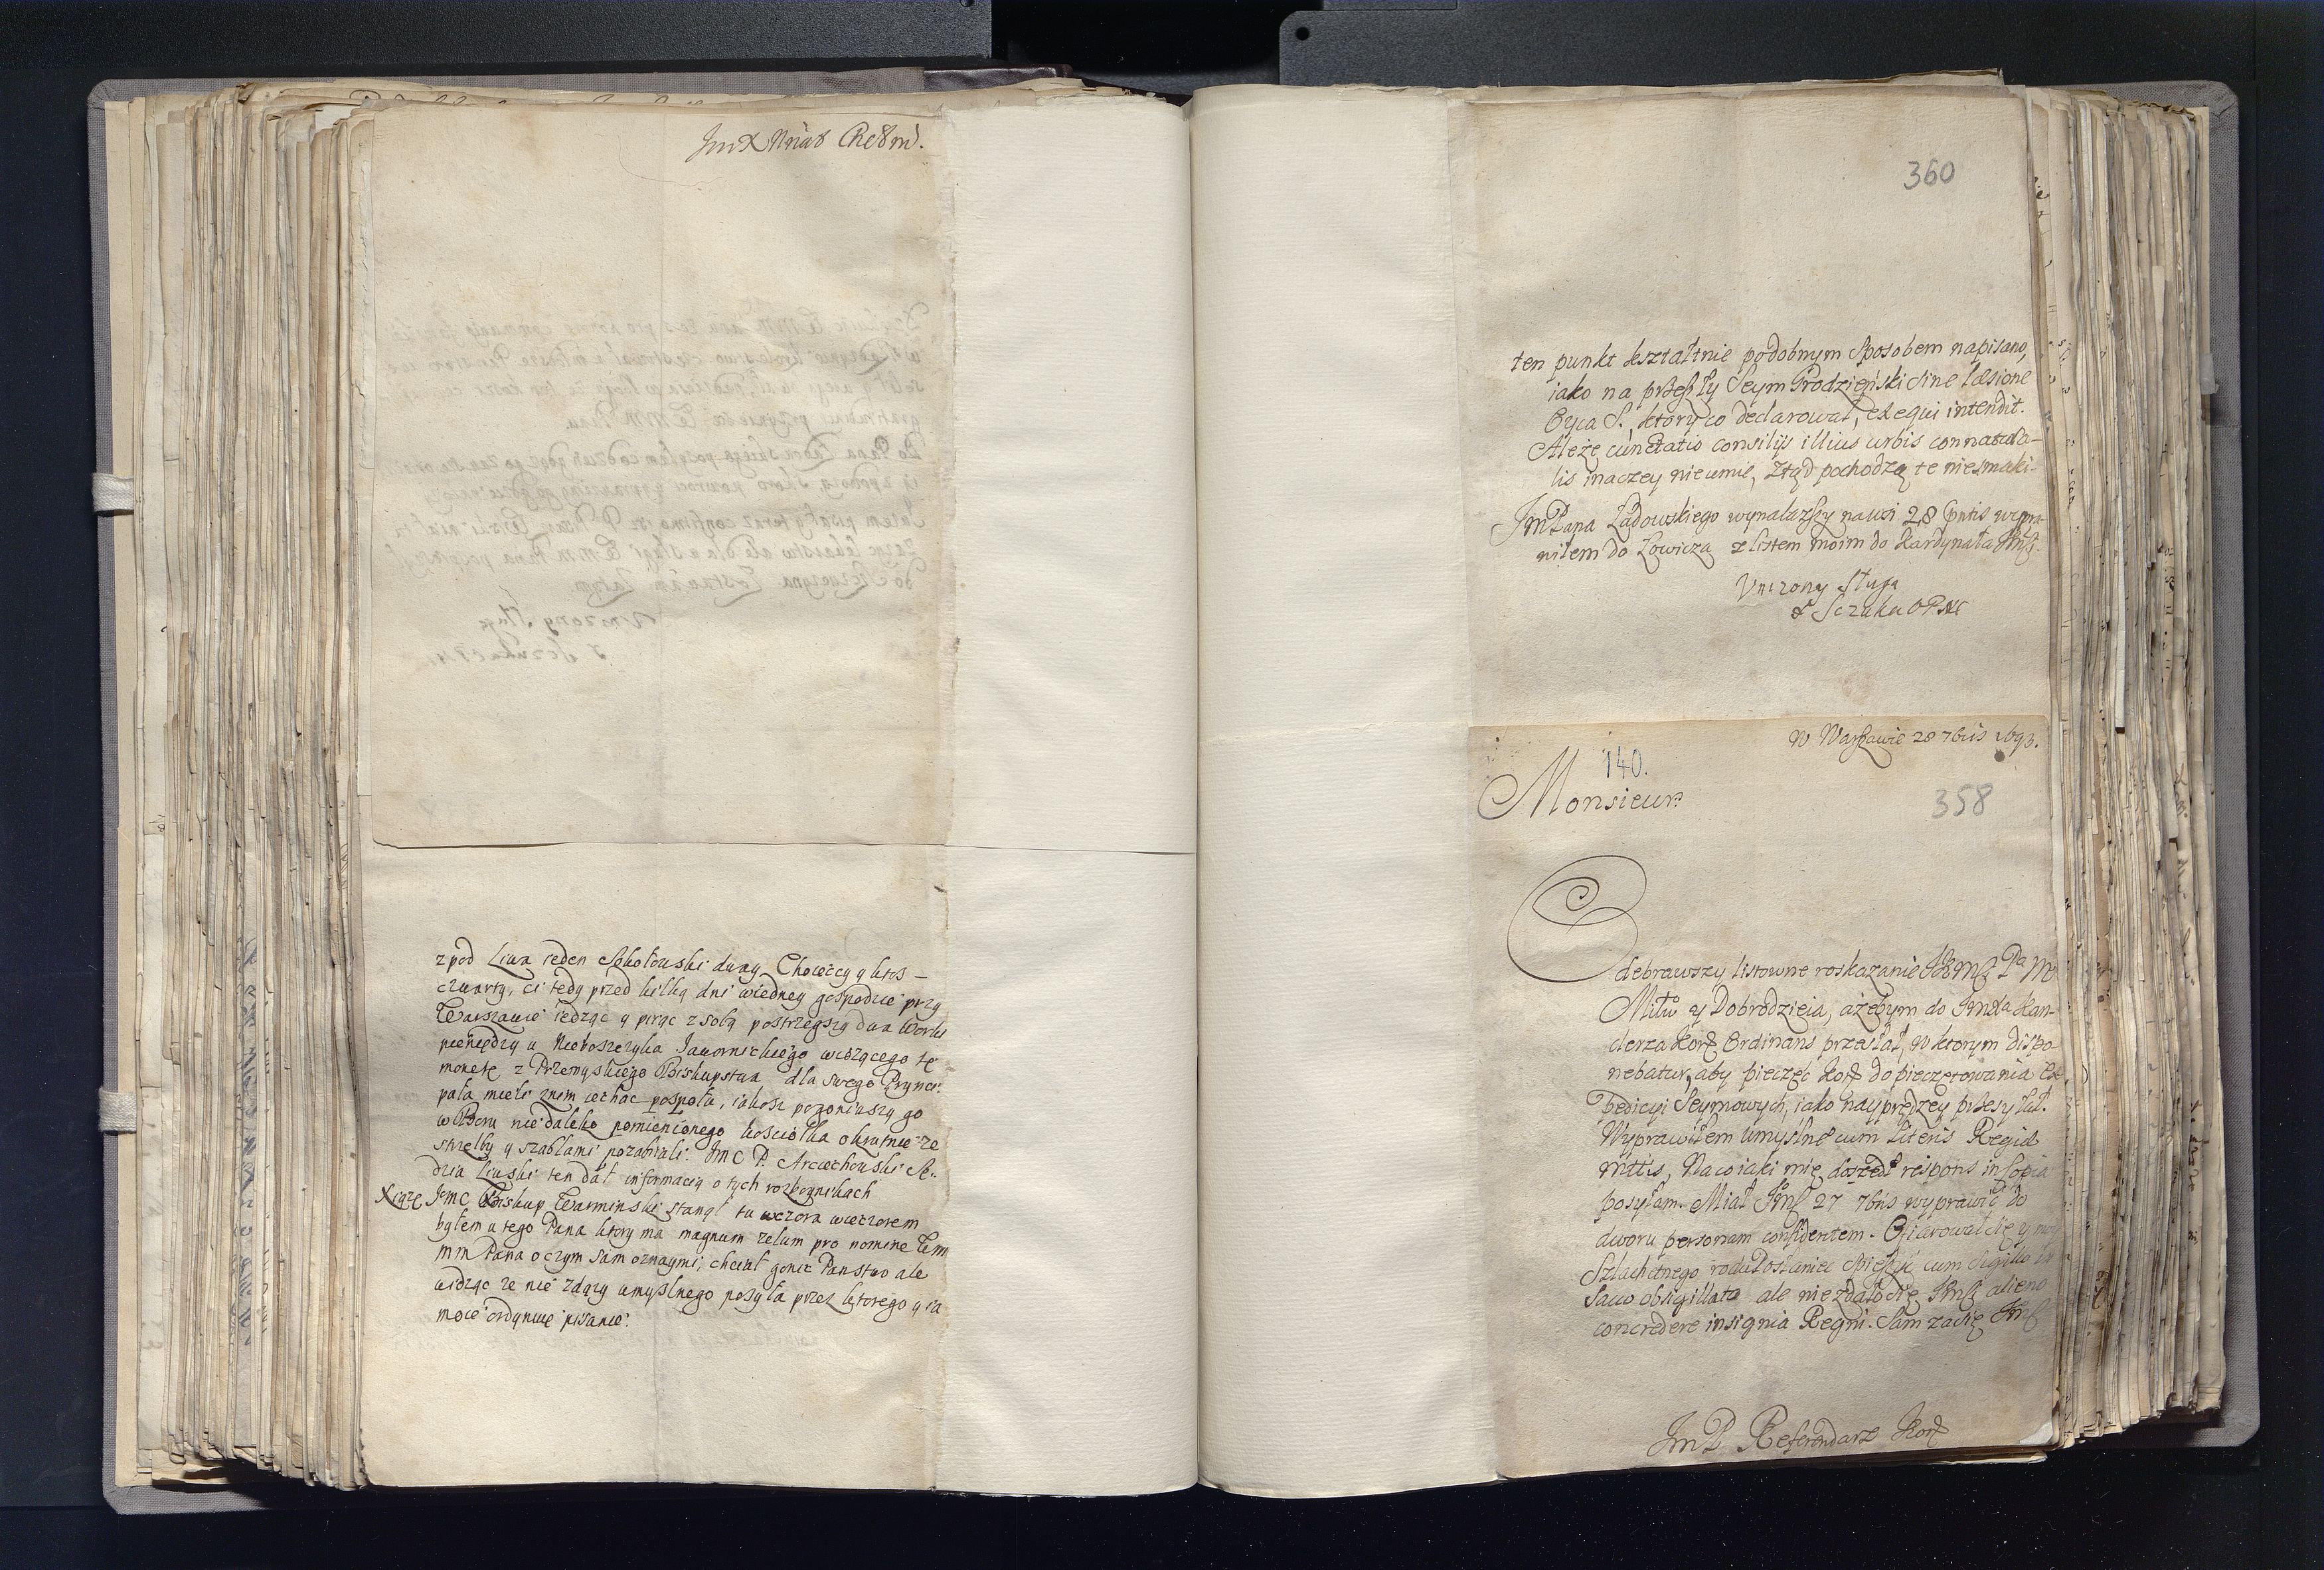 ImX Nriab Chełmˢ.
z pod Liwa ieden Sokołowski dway Choieccy y ktos
czwarty, ci tedy przed kilką dni wiedney gospodzie przy
Warszawie iedząc y piiąc z sobą postrzegszy dwa Worki
pieniędzy u Nieboszczyka Jawornickiego wiozącego tę
monetę z Przemyskiego Biskupstwa dla swego Pryncy:
pała mieli znim iechac pospołu, iakosz pogoniwszy go
w Boru nie daleko pomienionego kosciołka okrutnie ze
strzelby y szablami pozabiiali. Jmc P. Arciechowski Sę:
dzia Liwski ten dał informacią o tych rozboynikach
Xiąze Jemc Biskup Warminski stanął tu wczora wieczorem
byłem u tego Pana ktory ma magnum zelum pro nomine Wm
mm Pana o czym sam oznaymi, chciał gonic Panstwo ale
widząc ze nie zdązy umyslnego posyła przez ktorego y ia
moie ordynuię pisanie.
360
ten punkt kształtnie podobnym sposobem napisano,
iako na przeszły Seym Grodzieński sine læsione
Oyca S. ktory co declarował, exequi intendit.
Ale że cunctatio consilijs illius urbis connatura-
lis inaczey nieumie, ztąd pochodzą te niesmaki.
ImPana Ładowskiego wynalazszy na wsi 28 pntis wypra-
wiłem do Łowicza z listem moim do Kardynała Imsci.
Vniżony Sługa
S Sczuka
W Warszawie 28 7bris 1693.
140.
Monsieur
358
Odebrawszy listowne roskazanie WMsc Pa M
Miłᵒ y Dobrodzieia, ażebym do ImXa Kan-
clerza Kor Ordinans przesłał, w ktorym dispo-
nebatur, aby pieczęć Kor do pieczętowania Ex-
pedicyi Seymowych, iako nayprędzey przesyłał.
Wyprawiłem umyślneᵒ cum literis Regiis
mttis, Na co iaki mię doszedł respons in copia
posyłam. Miał Imsc 27 7bris wyprawić do
dworu personam confidentem. Ofiarował się y moy
Szlachetnego rodu Posłaniec spieszyć cum sigillo in
sacco obsigillato ale niezdało się Imsci alieno
concredere insignia Regni. Sam zasię Imsc
ImP Referendarz Kor